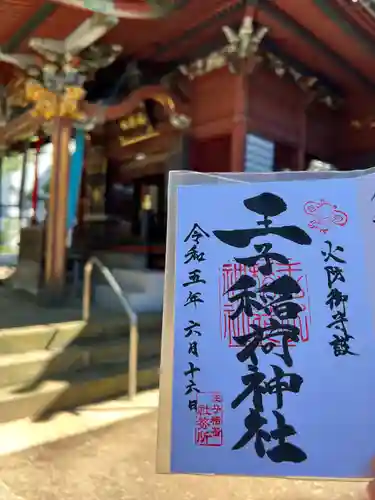 火防御守護
王子稲荷神社
令和五年六月十六日
王子稲荷
社務所